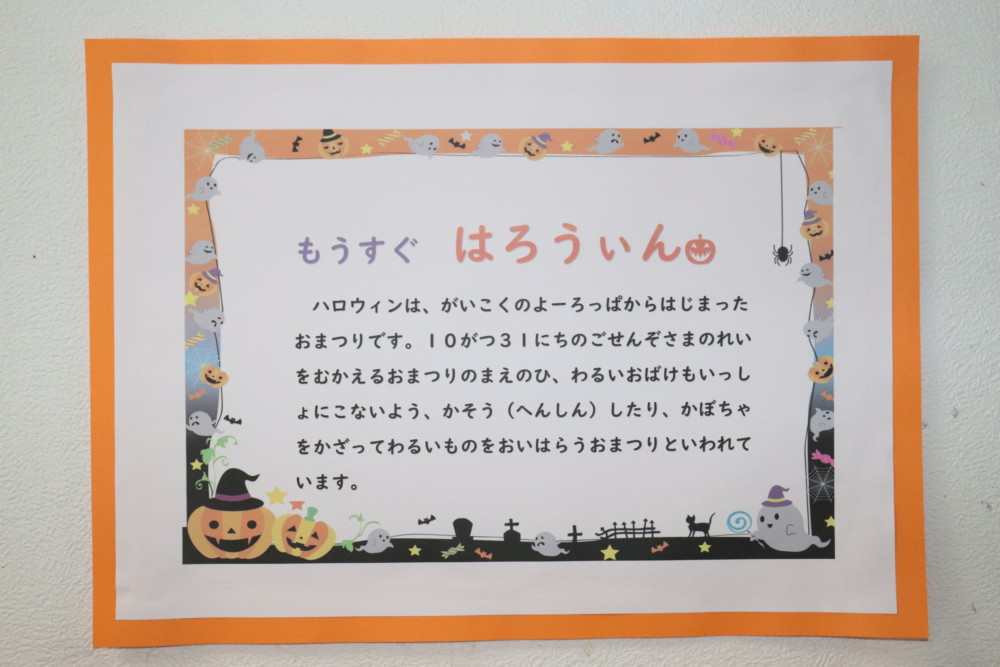 もうすぐ　はろうぃん
ハロウィンは、がいこくのよーろっぱからはじまった
おまつりです。１０がつ３１にちのごせんぞさまのれい
をむかえるおまつりのまえのひ、わるいおばけもいっし
ょにこないよう、かそう（へんしん）したり、かぼちゃ
をかざってわるいものをおいはらうおまつりといわれて
います。